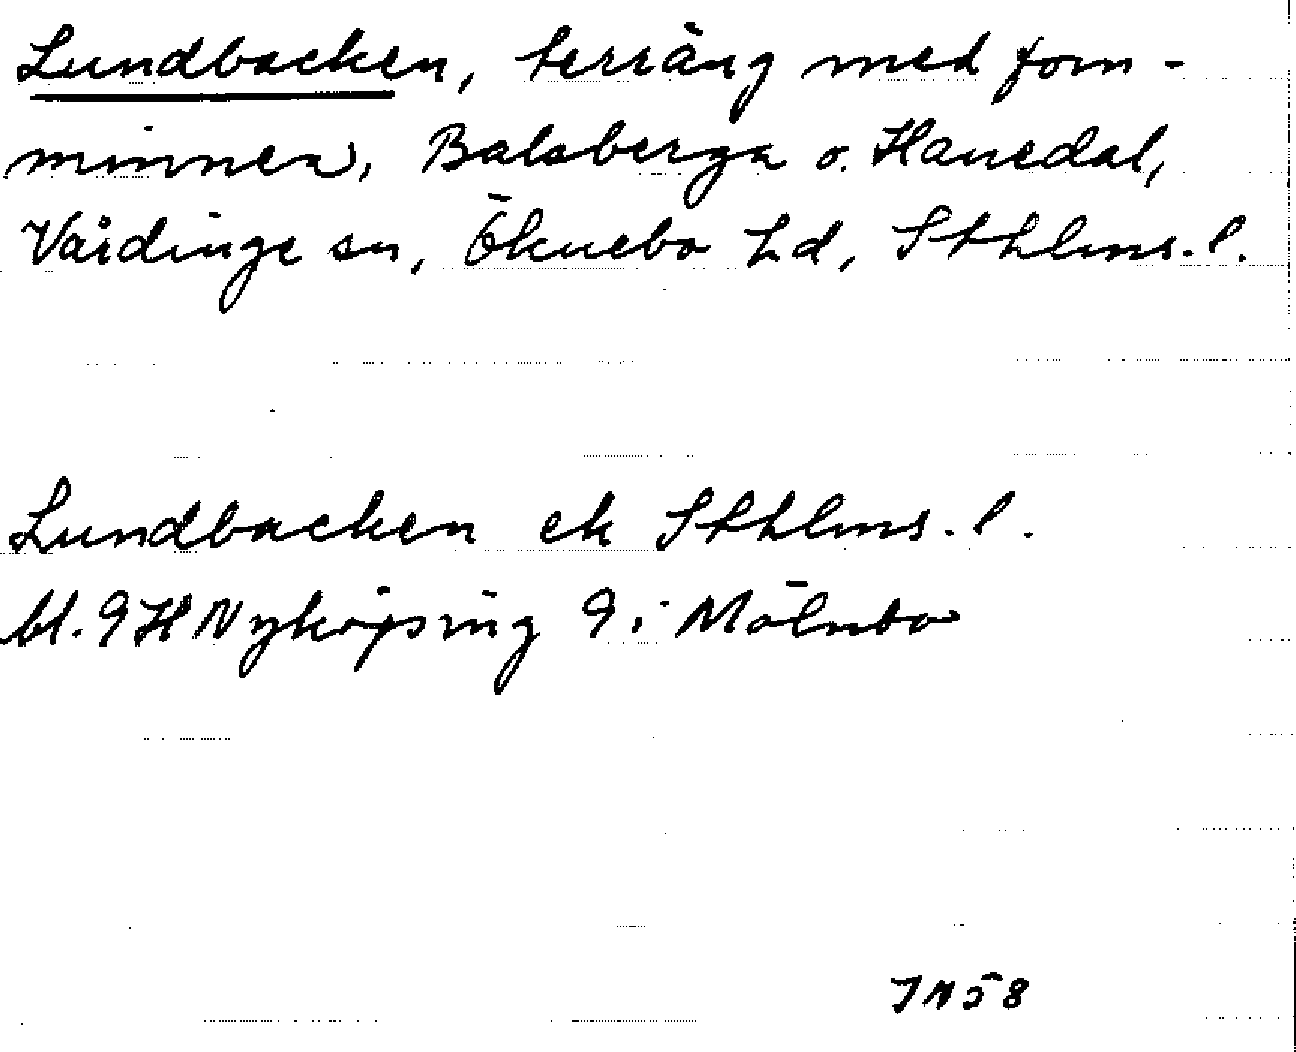 Lundbacken, terräng med forn-
minnen, Balsberga o. Hanedal,
Vårdinge sn, Öknebo hd, Sthlms. l.
Lundbacken ek Sthlms. l.
bl. 9H Nyköping 9i Mölnbo